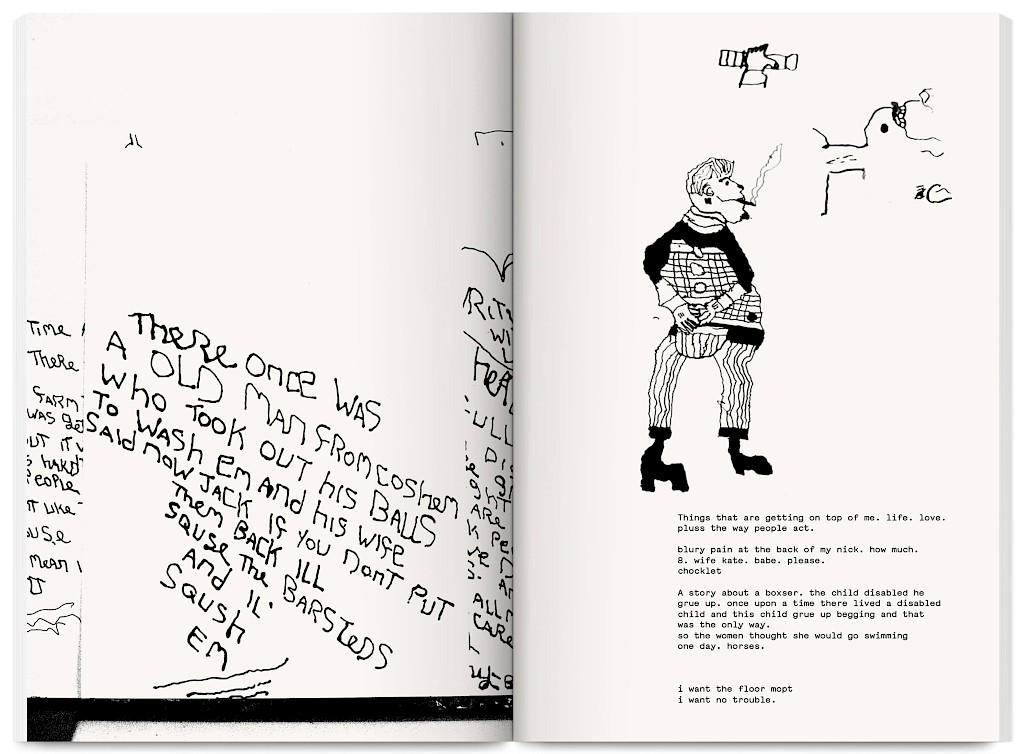 Time
There
WAS
PEOPLE
MEAN
There once WAS
A OLD MAN FROM COSHEM
Who Took OUT his BALLS
To WASh Em And his WIFE
SAid now JACK IF you DonT PUT
Them BACK ILL
SQUSE The BARSTEDS
And IL'
SQUSH
EM
ARE
ALL
CARE
Things that are getting on top of me. life. love.
pluss the way people act.
blury pain at the back of my nick. how much.
8. wife kate. babe. please.
chocklet
A story about a boxser. the child disabled he
grue up. once upon a time there lived a disabled
child and this child grue up begging and that
was the only way.
so the women thought she would go swimming
one day. horses.
i want the floor mopt
i want no trouble.